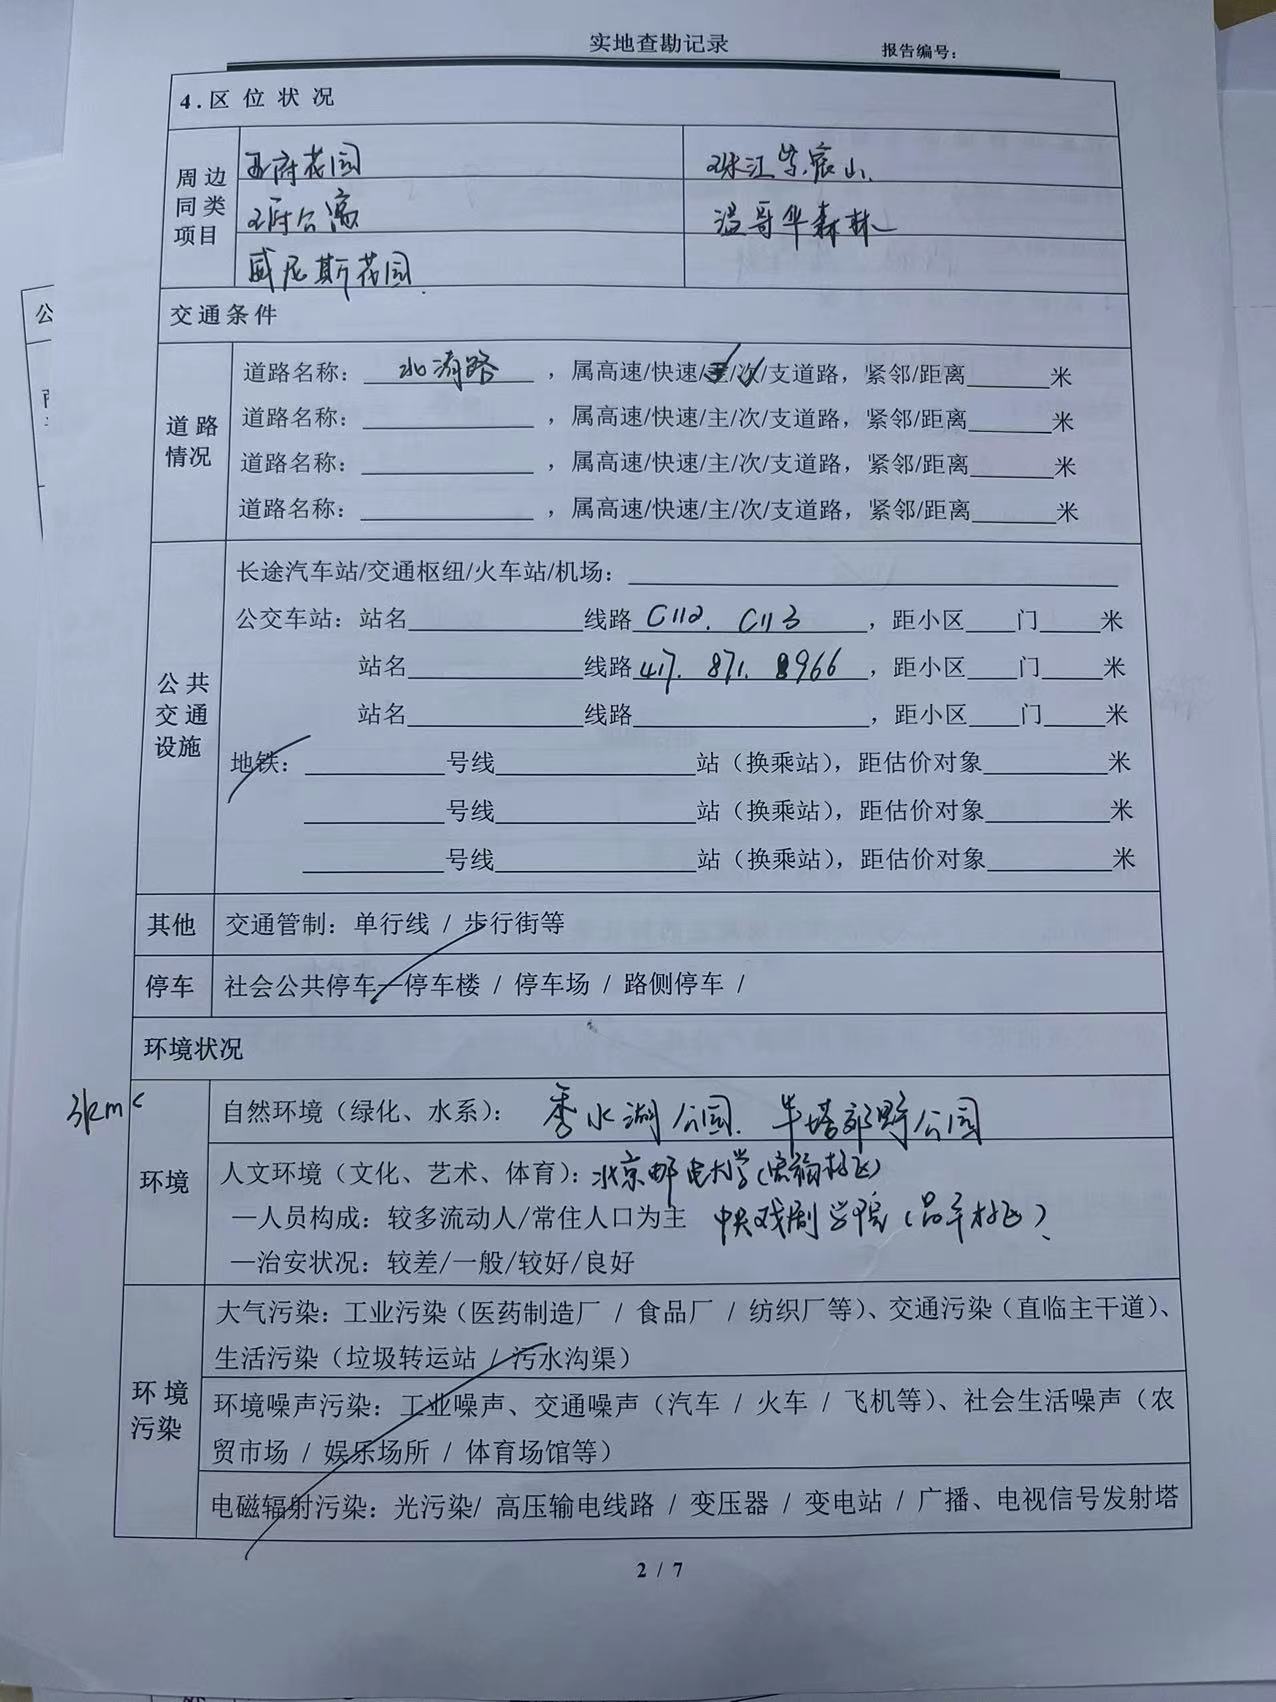 实地查勘记录 报告编号：
4.区 位 状 况
周 边
同 类
项目
王府花园
珠江紫宸山
王府公寓
温哥华森林
威尼斯花园
交通条件
道 路
情况
道路名称：北清路，属高速/快速/主/次/支道路，紧邻/距离______米
道路名称：______，属高速/快速/主/次/支道路，紧邻/距离______米
道路名称：______，属高速/快速/主/次/支道路，紧邻/距离______米
道路名称：______，属高速/快速/主/次/支道路，紧邻/距离______米
公 共
交 通
设施
长途汽车站/交通枢纽/火车站/机场：______
公交车站：站名______线路 C112. C113，距小区____门____米
站名______线路 417. 871. 8966，距小区____门____米
站名______线路______，距小区____门____米
地铁：______号线______站（换乘站），距估价对象______米
______号线______站（换乘站），距估价对象______米
______号线______站（换乘站），距估价对象______米
其他 交通管制：单行线 / 步行街等
停车 社会公共停车—停车楼 / 停车场 / 路侧停车 /
环境状况
3km
环境
自然环境（绿化、水系）：秀水湖公园. 半塔郊野公园
人文环境（文化、艺术、体育）：北京邮电大学(宏福校区)
—人员构成：较多流动人/常住人口为主 中央戏剧学院（昌平校区）
—治安状况：较差/一般/较好/良好
环 境
污染
大气污染：工业污染（医药制造厂 / 食品厂 / 纺织厂等）、交通污染（直临主干道）、
生活污染（垃圾转运站 / 污水沟渠）
环境噪声污染：工业噪声、交通噪声（汽车 / 火车 / 飞机等）、社会生活噪声（农
贸市场 / 娱乐场所 / 体育场馆等）
电磁辐射污染：光污染/ 高压输电线路 / 变压器 / 变电站 / 广播、电视信号发射塔
2 / 7
公